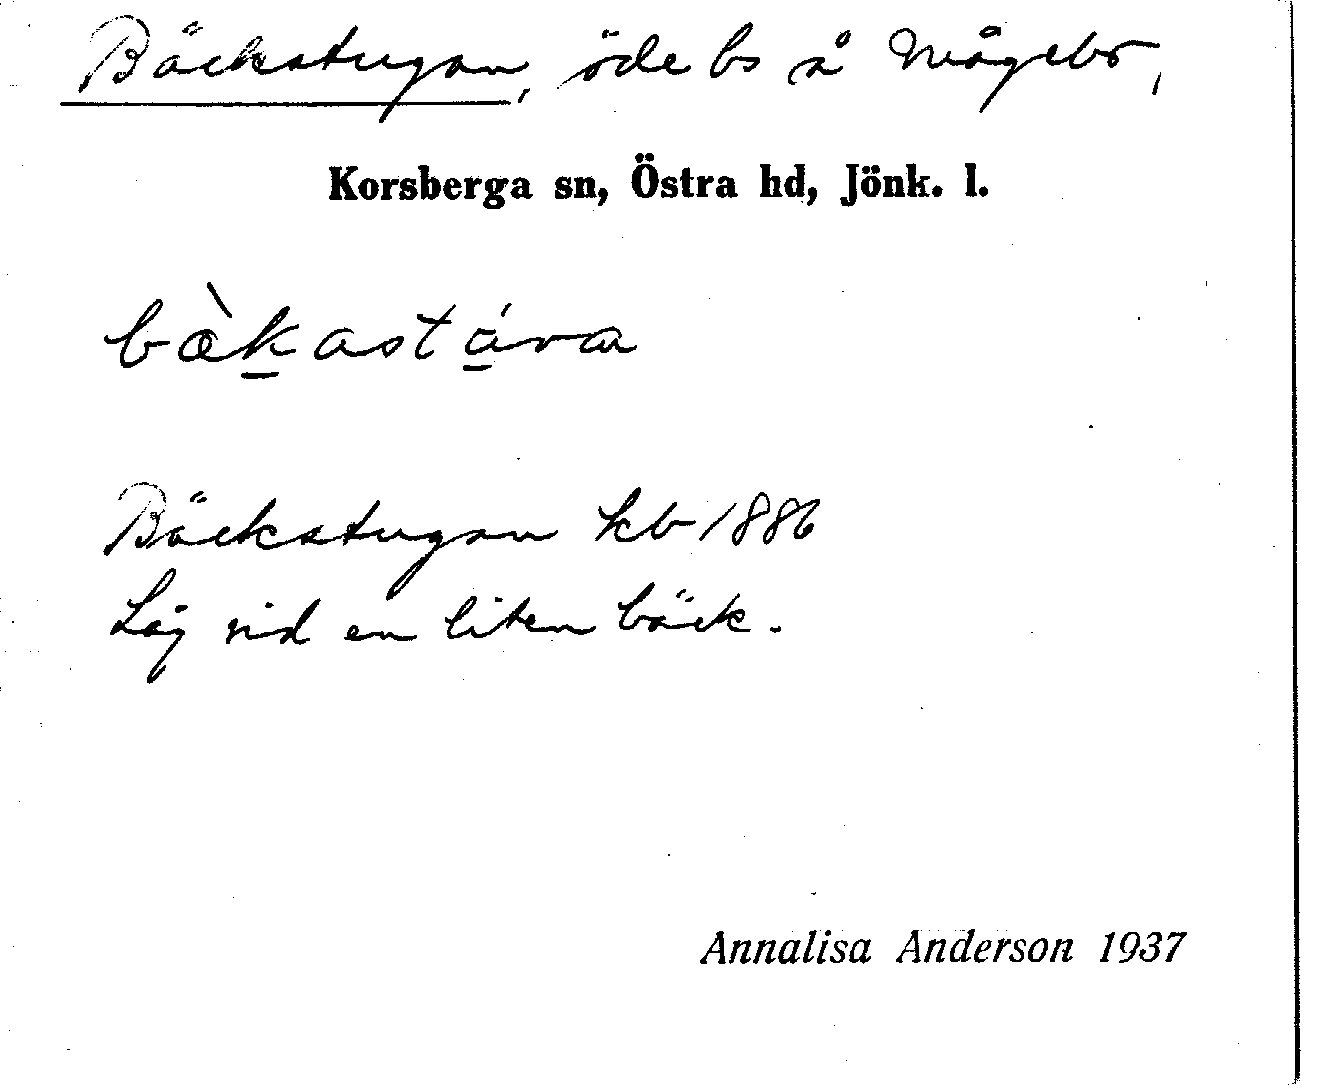 Bäckstugan, öde bs å Mågebo,
Korsberga sn, Östra hd, Jönk. l.
bæ̀k̲astá̲va
Bäckstugan kb 1886
Låg vid en liten bäck.
Annalisa Anderson 1937